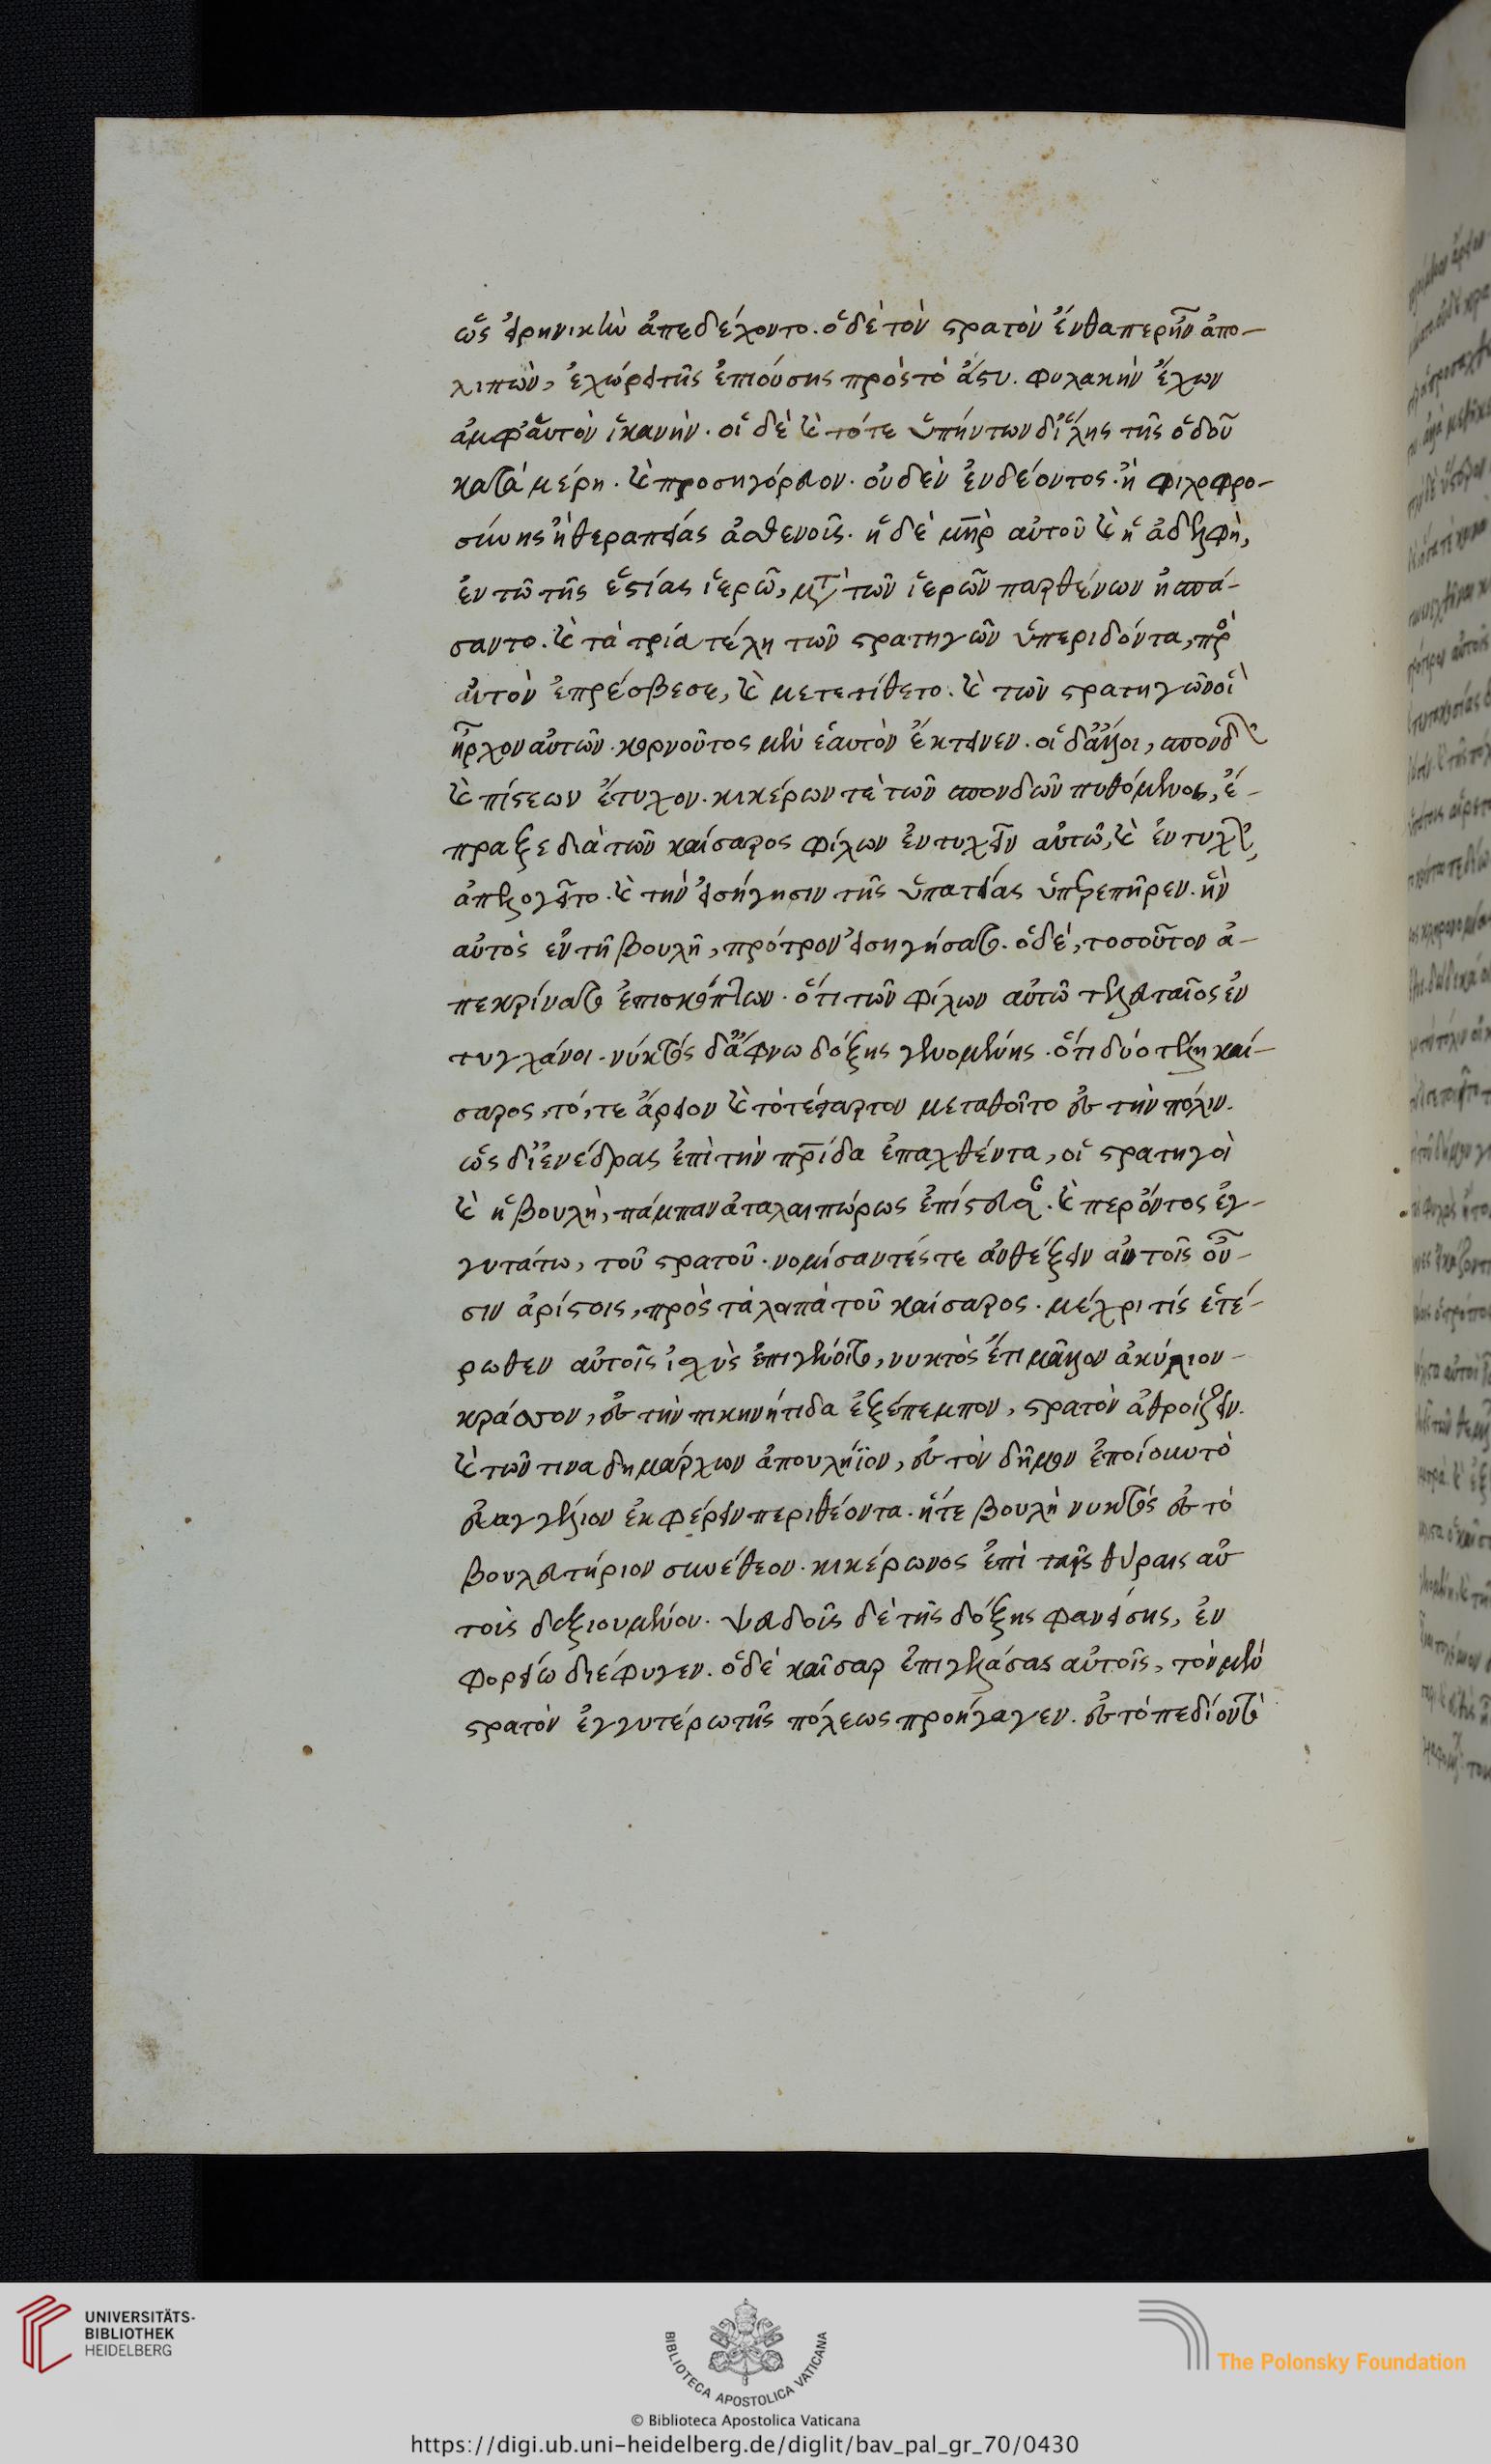 ὡς εἰρηνικὴν ἀπεδέχοντο. ὁ δὲ τὸν στρατὸν ἔνθαπερ ἦν ἀπο-
λιπὼν, ἐχώρει τῆς ἐπιούσης πρὸς τὸ ἄστυ. φυλακὴν ἔχων
ἀμφ' αὑτὸν ἱκανήν. οἱ δὲ καὶ τότε ὑπήντων δι' ὅλης τῆς ὁδοῦ
κατὰ μέρη. καὶ προσηγόρευον. οὐδὲν ἐνδέοντος ἢ φιλοφρο-
σύνης ἢ θεραπείας ἀσθενοῦς. ἡ δὲ μὴρ αὐτοῦ καὶ ἡ ἀδελφὴ,
ἐν τῶ τῆς ἑστίας ἱερῶ, μετὰ τῶν ἱερῶν παρθένων ἠσπά-
σαντο. καὶ τὰ τρία τέλη τῶν στρατηγῶν ὑπεριδόντα, πρὸς
αὐτὸν ἐπρέσβευσε, καὶ μετετίθετο. καὶ τῶν στρατηγῶν οἳ
ἦρχον αὐτῶν. κορνοῦτος μὲν ἑαυτὸν ἔκτεινεν. οἱ δ' ἄλλοι, σπονδῶν
καὶ πίστεων ἔτυχον. κικέρων τε τῶν σπονδῶν πυθόμενος, ἔ-
πραξε διὰ τῶν καίσαρος φίλων ἐντυχεῖν αὐτῶ, καὶ ἐντυχὼν,
ἀπελογεῖτο. καὶ τὴν εἰσήγησιν τῆς ὑπατείας ὑπερεπῆρεν. ἣν
αὐτὸς ἐν τῆ βουλῆ, πρότερον εἰσηγήσατο. ὁ δὲ, τοσοῦτον ἀ-
πεκρίνατο ἐπισκώπτων. ὅτι τῶν φίλων αὐτῶ τελευταῖος ἐν
τυγχάνοι. νύκτὸς δ' ἄφνω δόξης γενομένης. ὅτι δύο τέλη καί-
σαρος, τό, τε ἄρειον καὶ τὸ τέταρτον μεταθοῖτο ἐς τὴν πόλιν.
ὡς δι' ἐνέδρας ἐπὶ τὴν πρίδα ἐπαχθέντα, οἱ στρατηγοὶ
καὶ ἡ βουλὴ, πάμπαν ἀταλαιπώρως ἐπίστευσαν. καὶ περ ὄντος ἐγ-
γυτάτω, τοῦ στρατοῦ. νομίσαντές τε ἀνθέξειν αὐτοῖς οὖ-
σιν ἀρίστοις, πρὸς τὰ λοιπὰ τοῦ καίσαρος. μέχρι τίς ἑτέ-
ρωθεν αὐτοῖς ἰσχὺς ἐπιγένοιτο, νυκτὸς ἔτι μάλλον ἀκύλιον
κράσσον, ἐς τὴν πικηνήτιδα ἐξέπεμπον, στρατὸν ἀθροίζειν.
καὶ τῶν τινα δημάρχων ἀπουλήϊον, ἐς τὸν δῆμον ἐποίουν τὸ
εὐαγγέλιον ἐκφέρειν περιθέοντα. ἥ τε βουλὴ νυκτὸς ἐς τὸ
βουλευτήριον συνέθεον. κικέρωνος ἐπὶ ταῖς θύραις αὐ
τοὶς δεξιουμένου. ψευδοῦς δὲ τῆς δόξης φανείσης, ἐν
φορείω διέφυγεν. ὁ δὲ καῖσαρ ἐπιγελάσας αὐτοῖς, τὸν μὲν
στρατὸν ἐγγυτέρω τῆς πόλεως προήγαγεν. ἐς τὸ πεδίον τὸ
UNIVERSITÄTS-
BIBLIOTHEK
HEIDELBERG
BIBLIOTECA APOSTOLICA VATICANA
The Polonsky Foundation
© Biblioteca Apostolica Vaticana
https://digi.ub.uni-heidelberg.de/diglit/bav_pal_gr_70/0430